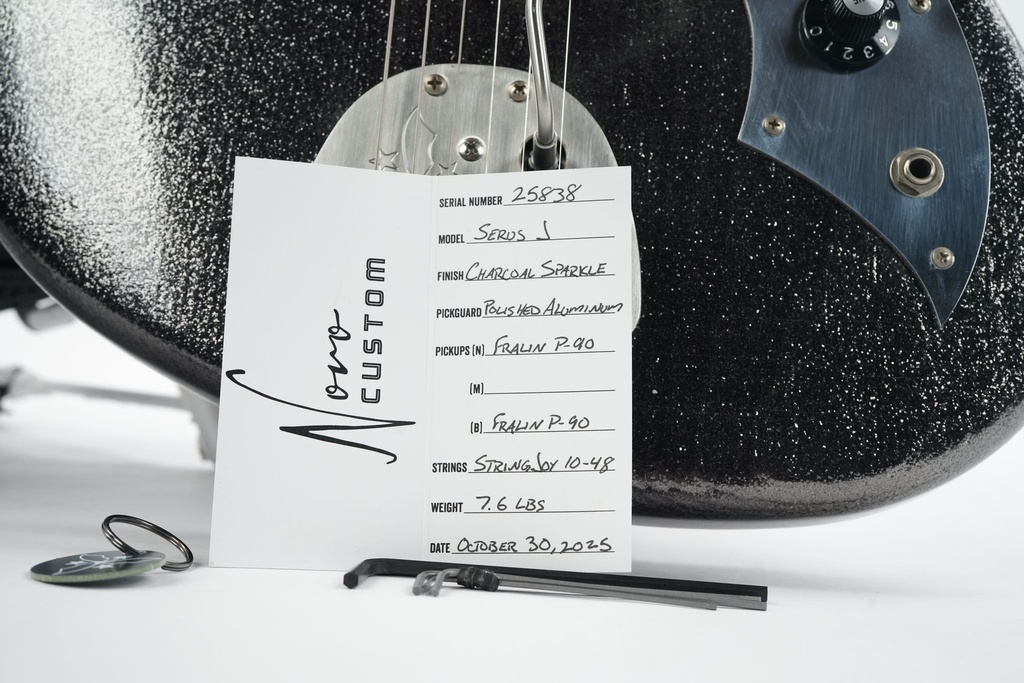 5
4
3
2
1
0
SERIAL NUMBER 25838
MODEL SERUS J
FINISH CHARCOAL SPARKLE
PICKGUARD POLISHED ALUMINUM
PICKUPS (N) FRALIN P-90
(M)
(B) FRALIN P-90
STRINGS STRINGJOY 10-48
WEIGHT 7.6 LBS
DATE OCTOBER 30, 2025
Novo
CUSTOM